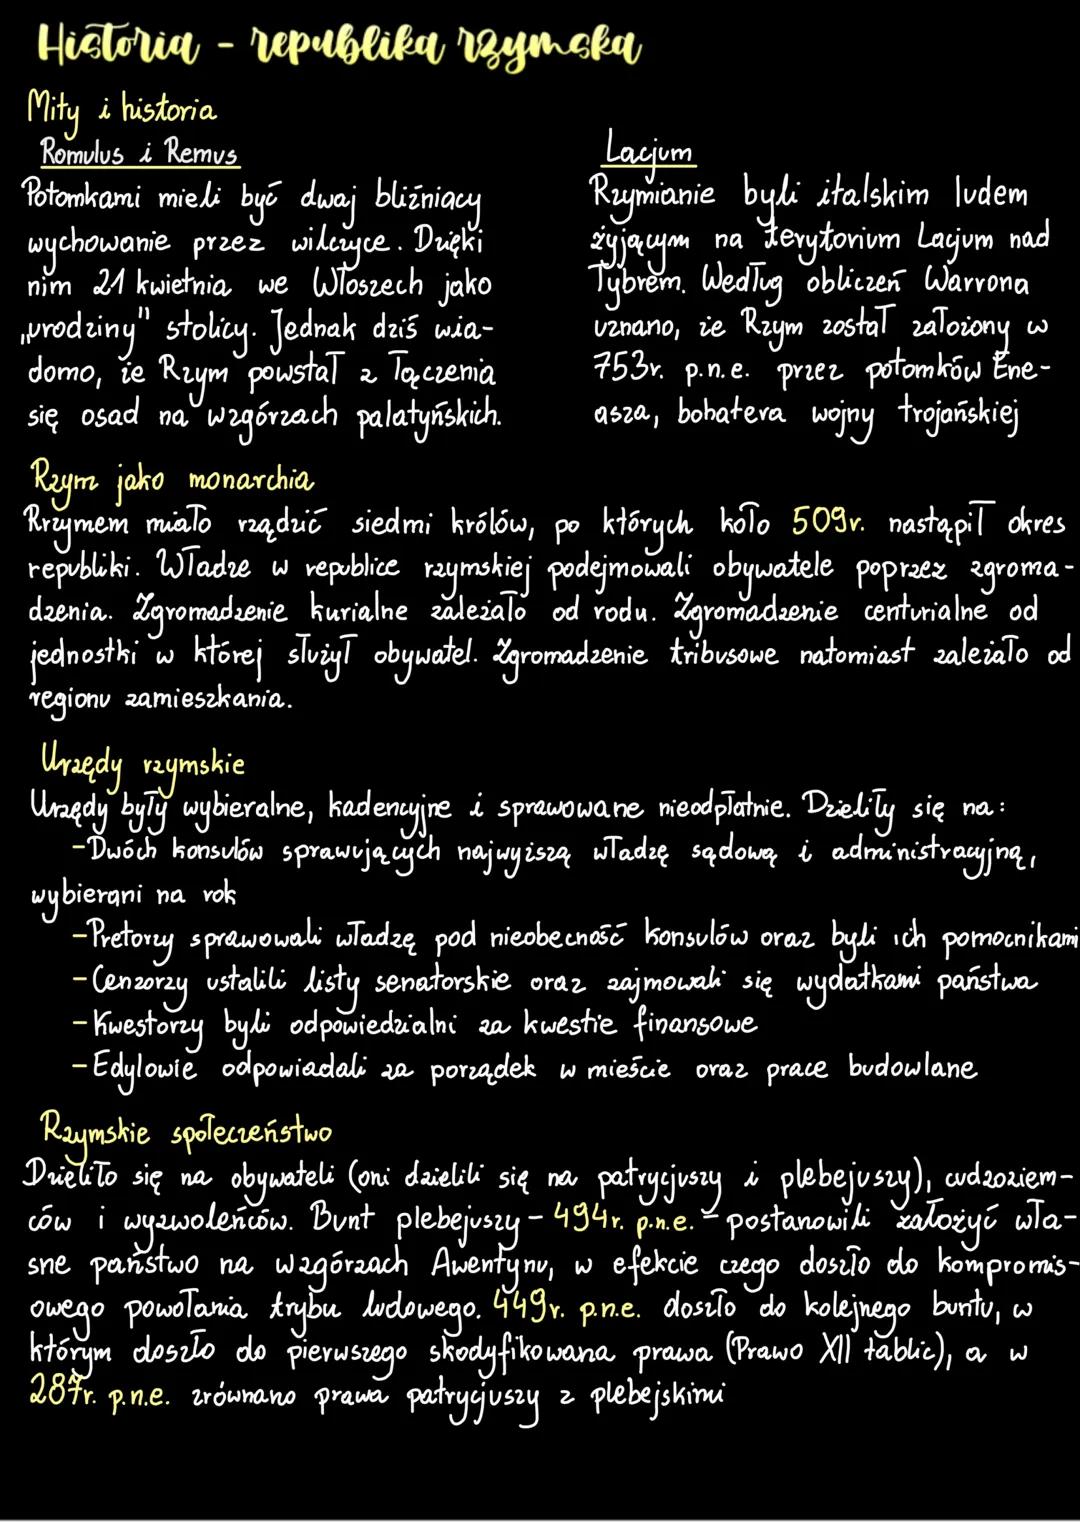 Historia - republika rzymska
Mity i historia
Romulus i Remus
Potomkami mieli być dwaj bliźniacy
wychowanie przez wilczyce. Dzięki
nim 21 kwietnia we Włoszech jako
„urodziny" stolicy. Jednak dziś wia-
domo, że Rzym powstał z łączenia
się osad na wzgórzach palatyńskich.
Lacjum
Rzymianie byli italskim ludem
żyjącym na terytorium Lacjum nad
Tybrem. Według obliczeń Warrona
uznano, że Rzym został założony w
753r. p.n.e. przez potomków Ene-
asza, bohatera wojny trojańskiej
Rzym jako monarchia
Rrzymem miało rządzić siedmi królów, po których koło 509r. nastąpił okres
republiki. Władze w republice rzymskiej podejmowali obywatele poprzez zgroma-
dzenia. Zgromadzenie kurialne zależało od rodu. Zgromadzenie centurialne od
jednostki w której służył obywatel. Zgromadzenie tribusowe natomiast zależało od
regionu zamieszkania.
Urzędy rzymskie
Urzędy były wybieralne, kadencyjne i sprawowane nieodpłatnie. Dzieliły się na:
-Dwóch konsulów sprawujących najwyższą władzę sądową i administracyjną,
wybierani na rok
-Pretorzy sprawowali władzę pod nieobecność konsulów oraz byli ich pomocnikami
-Cenzorzy ustalili listy senatorskie oraz zajmowali się wydatkami państwa
-Kwestorzy byli odpowiedzialni za kwestie finansowe
-Edylowie odpowiadali za porządek w mieście oraz prace budowlane
Rzymskie społeczeństwo
Dzieliło się na obywateli (oni dzielili się na patrycjuszy i plebejuszy), cudzoziem-
ców i wyzwoleńców. Bunt plebejuszy - 494r. p.n.e. - postanowili założyć wła-
sne państwo na wzgórzach Awentynu, w efekcie czego doszło do kompromis-
owego powołania trybu ludowego. 449r. p.n.e. doszło do kolejnego buntu, w
którym doszło do pierwszego skodyfikowana prawa (Prawo XII tablic), a w
287r. p.n.e. zrównano prawa patrycjuszy z plebejskimi